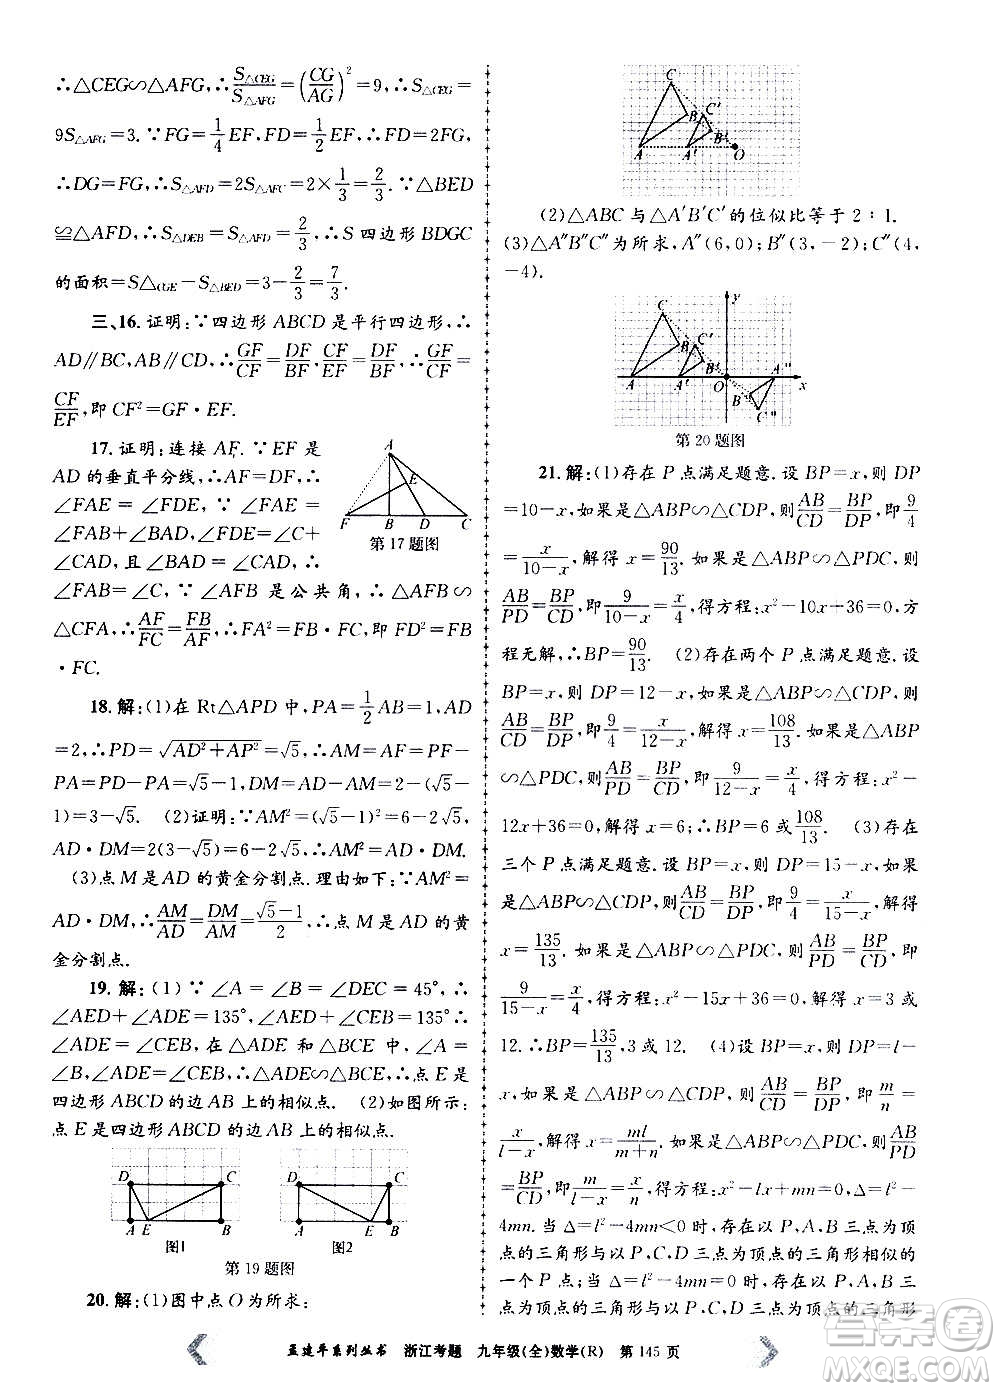 ∴△CEG∽△AFG,∴S△CEG/S△AFG=(CG/AG)²=9,∴S△CEG=
9S△AFG=3.∵FG=1/4EF,FD=1/2EF,∴FD=2FG,
∴DG=FG,∴S△AFD=2S△AFG=2×1/3=2/3.∵△BED
≌△AFD,∴S△DEB=S△AFD=2/3,∴S四边形BDGC
的面积=S△CGE−S△BED=3−2/3=7/3.
三、16.证明:∵四边形ABCD是平行四边形,∴
AD∥BC,AB∥CD,∴GF/CF=DF/BF,CF/EF=DF/BF,∴GF/CF=
CF/EF,即CF²=GF·EF.
17.证明:连接AF.∵EF是
AD的垂直平分线,∴AF=DF,∴
∠FAE=∠FDE,∵∠FAE=
∠FAB+∠BAD,∠FDE=∠C+
∠CAD,且∠BAD=∠CAD,∴
∠FAB=∠C,∵∠AFB是公共角,∴△AFB∽
△CFA,∴AF/FC=FB/AF,∴FA²=FB·FC,即FD²=FB
·FC.
A
E
F B D C
第17题图
18.解:(1)在Rt△APD中,PA=1/2AB=1,AD
=2,∴PD=√(AD²+AP²)=√5,∴AM=AF=PF−
PA=PD−PA=√5−1,DM=AD−AM=2−(√5−
1)=3−√5. (2)证明:∵AM²=(√5−1)²=6−2√5,
AD·DM=2(3−√5)=6−2√5,∴AM²=AD·DM.
(3)点M是AD的黄金分割点.理由如下:∵AM²=
AD·DM,∴AM/AD=DM/AM=(√5−1)/2,∴点M是AD的黄
金分割点.
19.解:(1)∵∠A=∠B=∠DEC=45°,∴
∠AED+∠ADE=135°,∠AED+∠CEB=135°∴
∠ADE=∠CEB,在△ADE和△BCE中,∠A=
∠B,∠ADE=∠CEB,∴△ADE∽△BCE,∴点E是
四边形ABCD的边AB上的相似点. (2)如图所示:
点E是四边形ABCD的边AB上的相似点.
D C D C
A E B A E B
图1 图2
第19题图
20.解:(1)图中点O为所求:
C
B C′
B′
A A′ O
(2)△ABC与△A′B′C′的位似比等于2∶1.
(3)△A″B″C″为所求,A″(6,0);B″(3,−2);C″(4,
−4).
y
C
B C′
B′ A″
A A′ O x
B
C″
第20题图
21.解:(1)存在P点满足题意.设BP=x,则DP
=10−x,如果是△ABP∽△CDP,则AB/CD=BP/DP,即9/4
=x/(10−x),解得x=90/13.如果是△ABP∽△PDC,则
AB/PD=BP/CD,即9/(10−x)=x/4,得方程:x²−10x+36=0,方
程无解,∴BP=90/13. (2)存在两个P点满足题意.设
BP=x,则DP=12−x,如果是△ABP∽△CDP,则
AB/CD=BP/DP,即9/4=x/(12−x),解得x=108/13.如果是△ABP
∽△PDC,则AB/PD=BP/CD,即9/(12−x)=x/4,得方程:x²−
12x+36=0,解得x=6;∴BP=6或108/13. (3)存在
三个P点满足题意.设BP=x,则DP=15−x,如果
是△ABP∽△CDP,则AB/CD=BP/DP,即9/4=x/(15−x),解得
x=135/13.如果是△ABP∽△PDC,则AB/PD=BP/CD,即
9/(15−x)=x/4,得方程:x²−15x+36=0,解得x=3或
12.∴BP=135/13,3或12. (4)设BP=x,则DP=l−
x,如果是△ABP∽△CDP,则AB/CD=BP/DP,即m/n=
x/(l−x),解得x=ml/(m+n).如果是△ABP∽△PDC,则AB/PD
=BP/CD,即m/(l−x)=x/n,得方程:x²−lx+mn=0,△=l²−
4mn.当△=l²−4mn<0时,存在以P、A、B三点为顶
点的三角形与以P、C、D三点为顶点的三角形相似的
一个P点;当△=l²−4mn=0时,存在以P、A、B三点
为顶点的三角形与以P、C、D三点为顶点的三角形
孟建平系列丛书 浙江考题 九年级(全)数学(R) 第145页